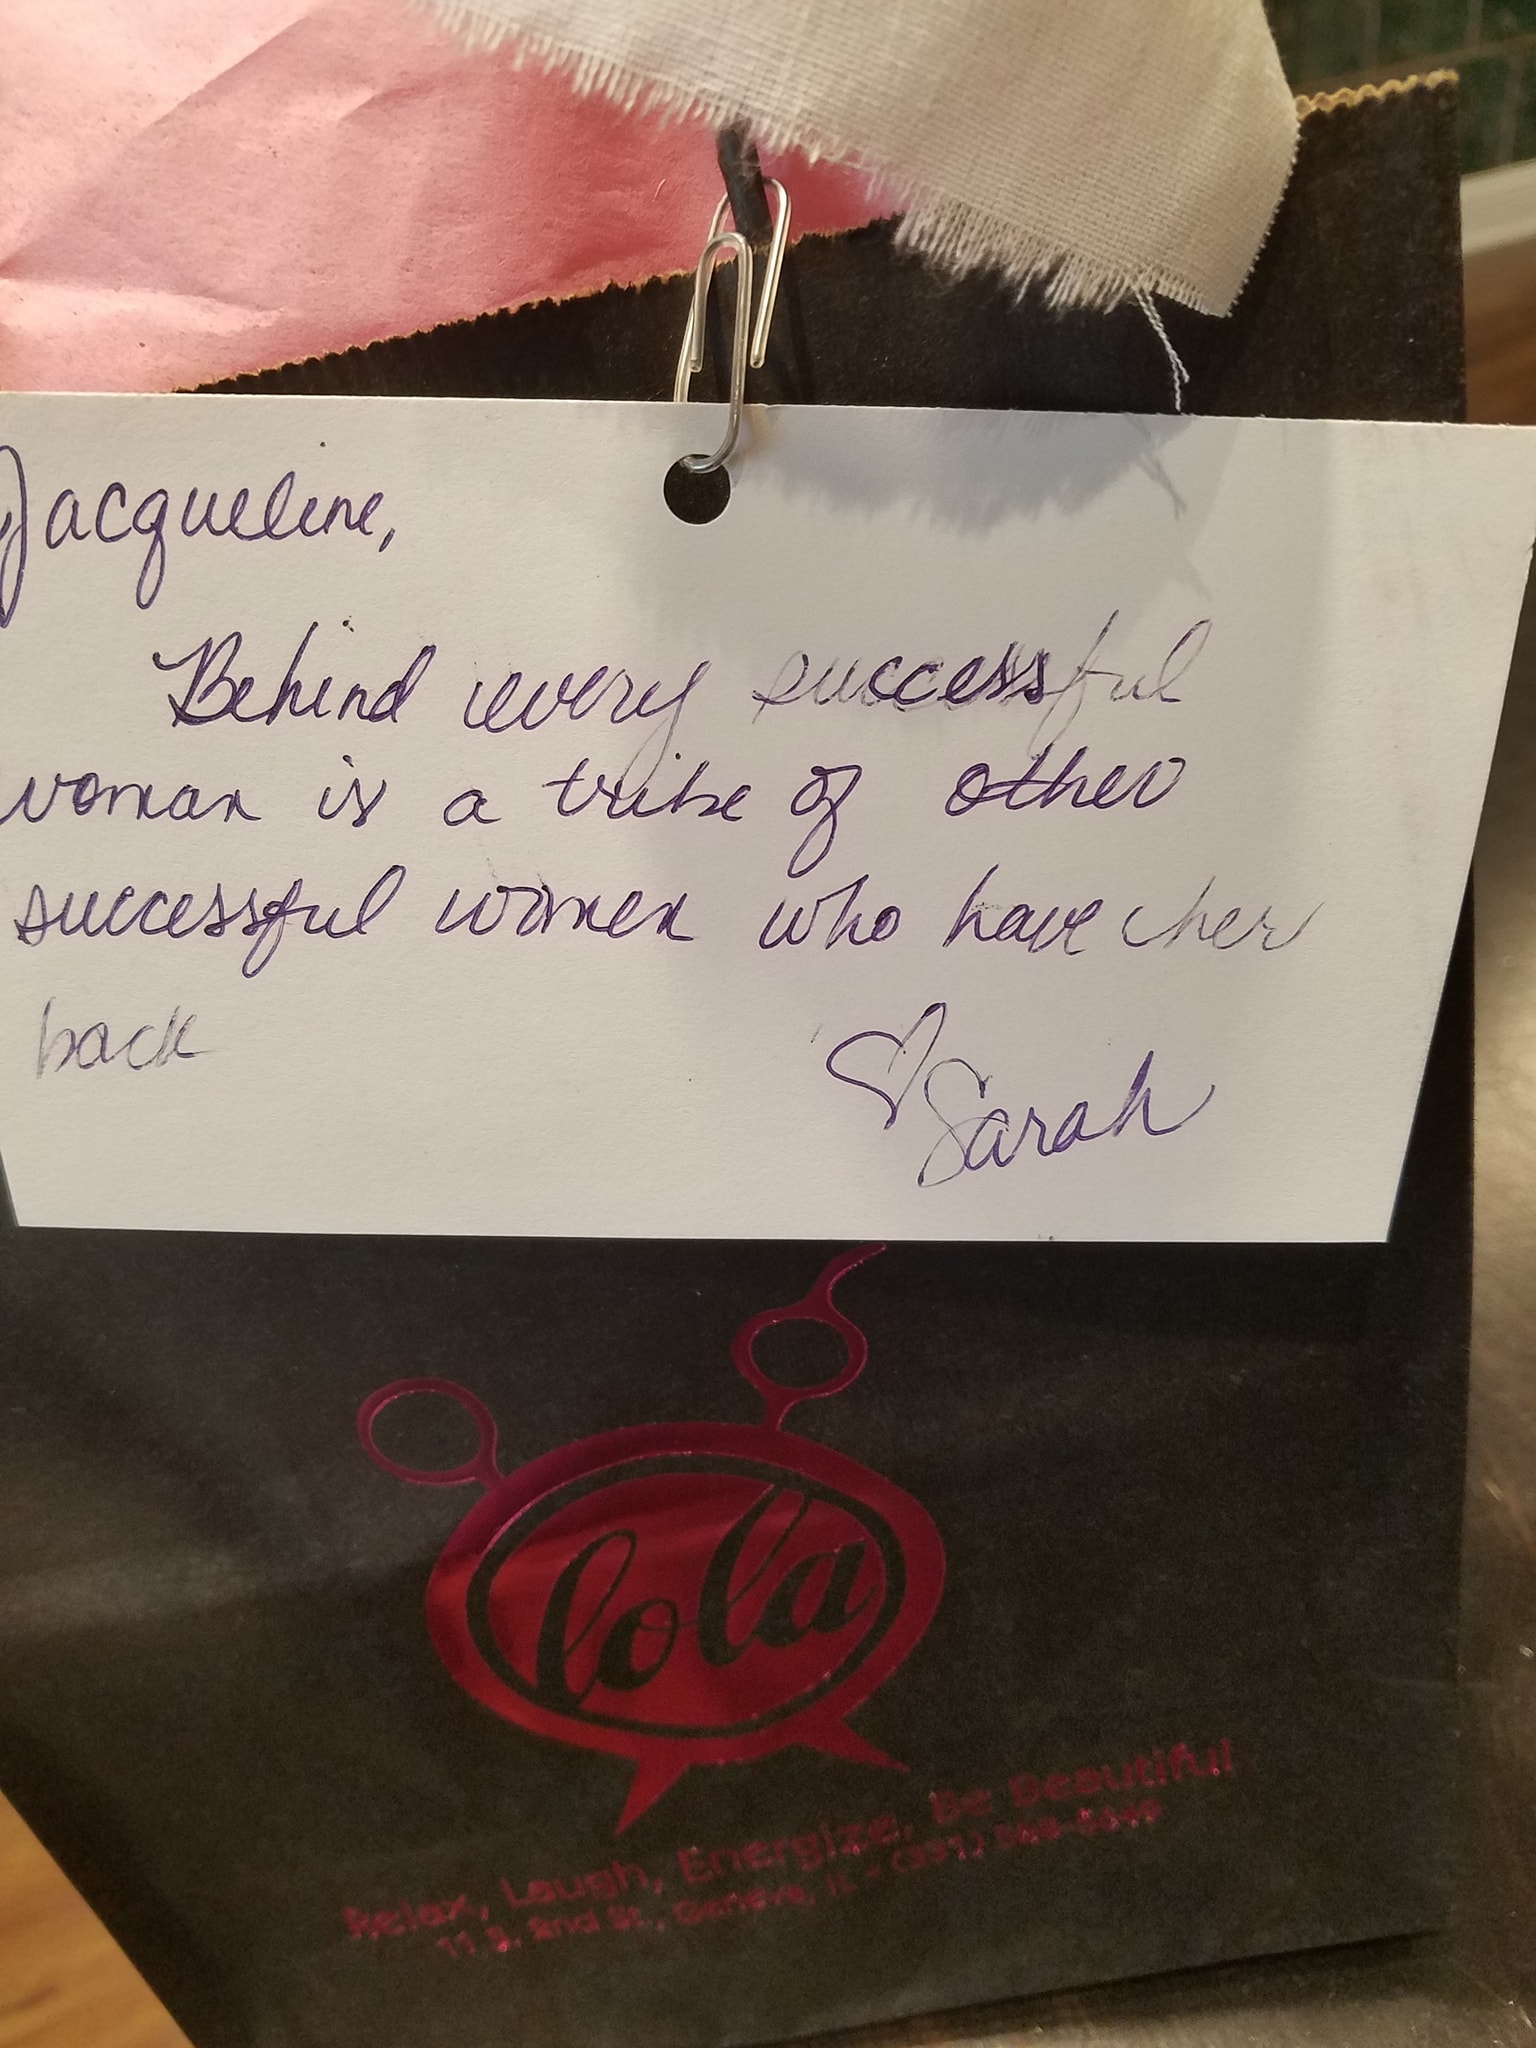 Jacqueline,
Behind every successful
woman is a tribe of other
successful women who have her
back
♡ Sarah
lola
Relax, Laugh, Energize, Be Beautiful
11 S. 2nd St., Geneva, IL